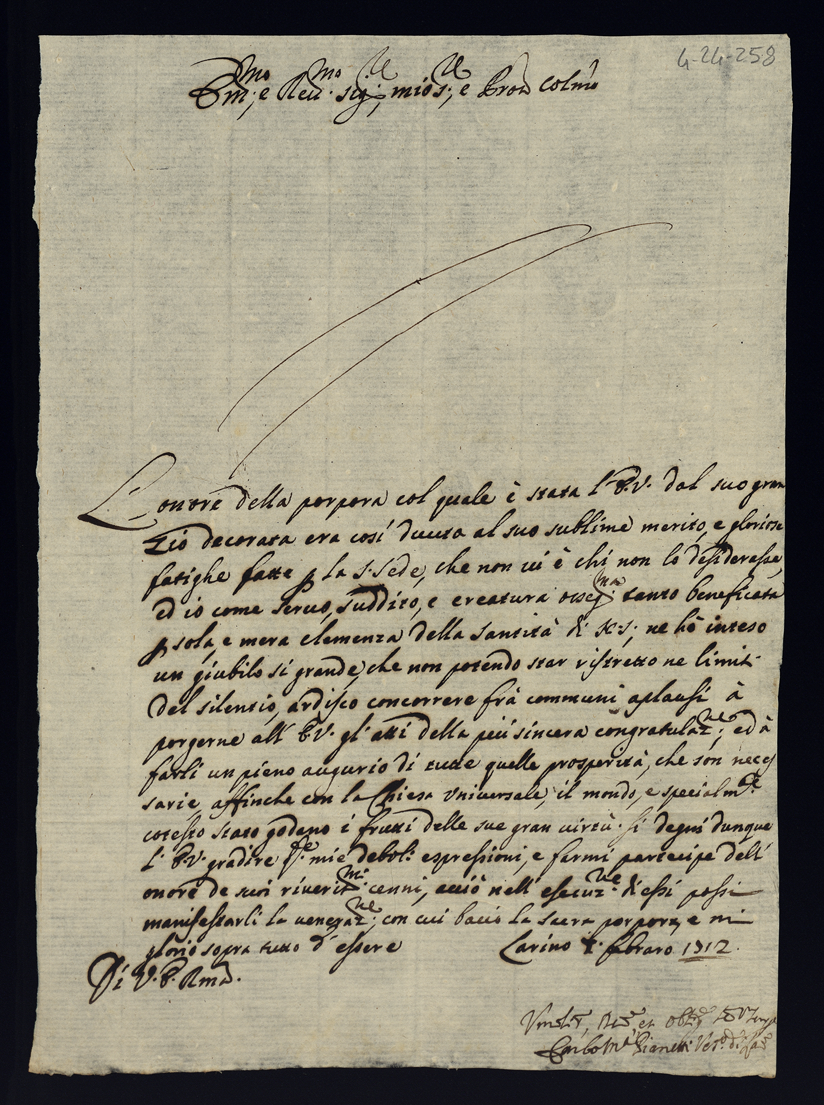 4-24-258
Em.mo e Reu.mo Sig.re, mio Sig.re, e Pron Colmo
L'onore della porpora col quale è stata l'E.V. dal suo gran
Zio decorata era così dovuta al suo sublime merito, e gloriose
fatighe fatte p la S. Sede, che non ui è chi non lo desiderasse,
ed io come seruo, suddito, e creatura osseq.ma tanto beneficata
p sola, e mera clemenza della Santità di N.S; ne hò inteso
un giubilo si grande, che non potendo star ristretto ne limiti
del silensio, ardisco concorrere frà communi aplausi à
porgerne all' E.V. gl' atti della più sincera congratulaz.ne; ed à
farli un pieno augurio di tutte quelle prosperità, che son neces
sarie, affinche con la Chiesa Vniuersale, il mondo, e specialm.te
cotesto stato godano i frutti delle sue gran uirtù. Si degni dunque
l' E.V. gradire q.te mie deboli espressioni, e farmi partecipe dell'
onore de suoi riueriti.mi cenni, acciò nell' esecuz.ne di essi possi
manifestarli la ueneraz.ne, con cui bacio la sacra porpora, e mi
glorio sopra tutto d'essere Larino febraro 1712.
Di V.E. Rma.
Carlo M.a Pianetti Vesc.o di Lar.o